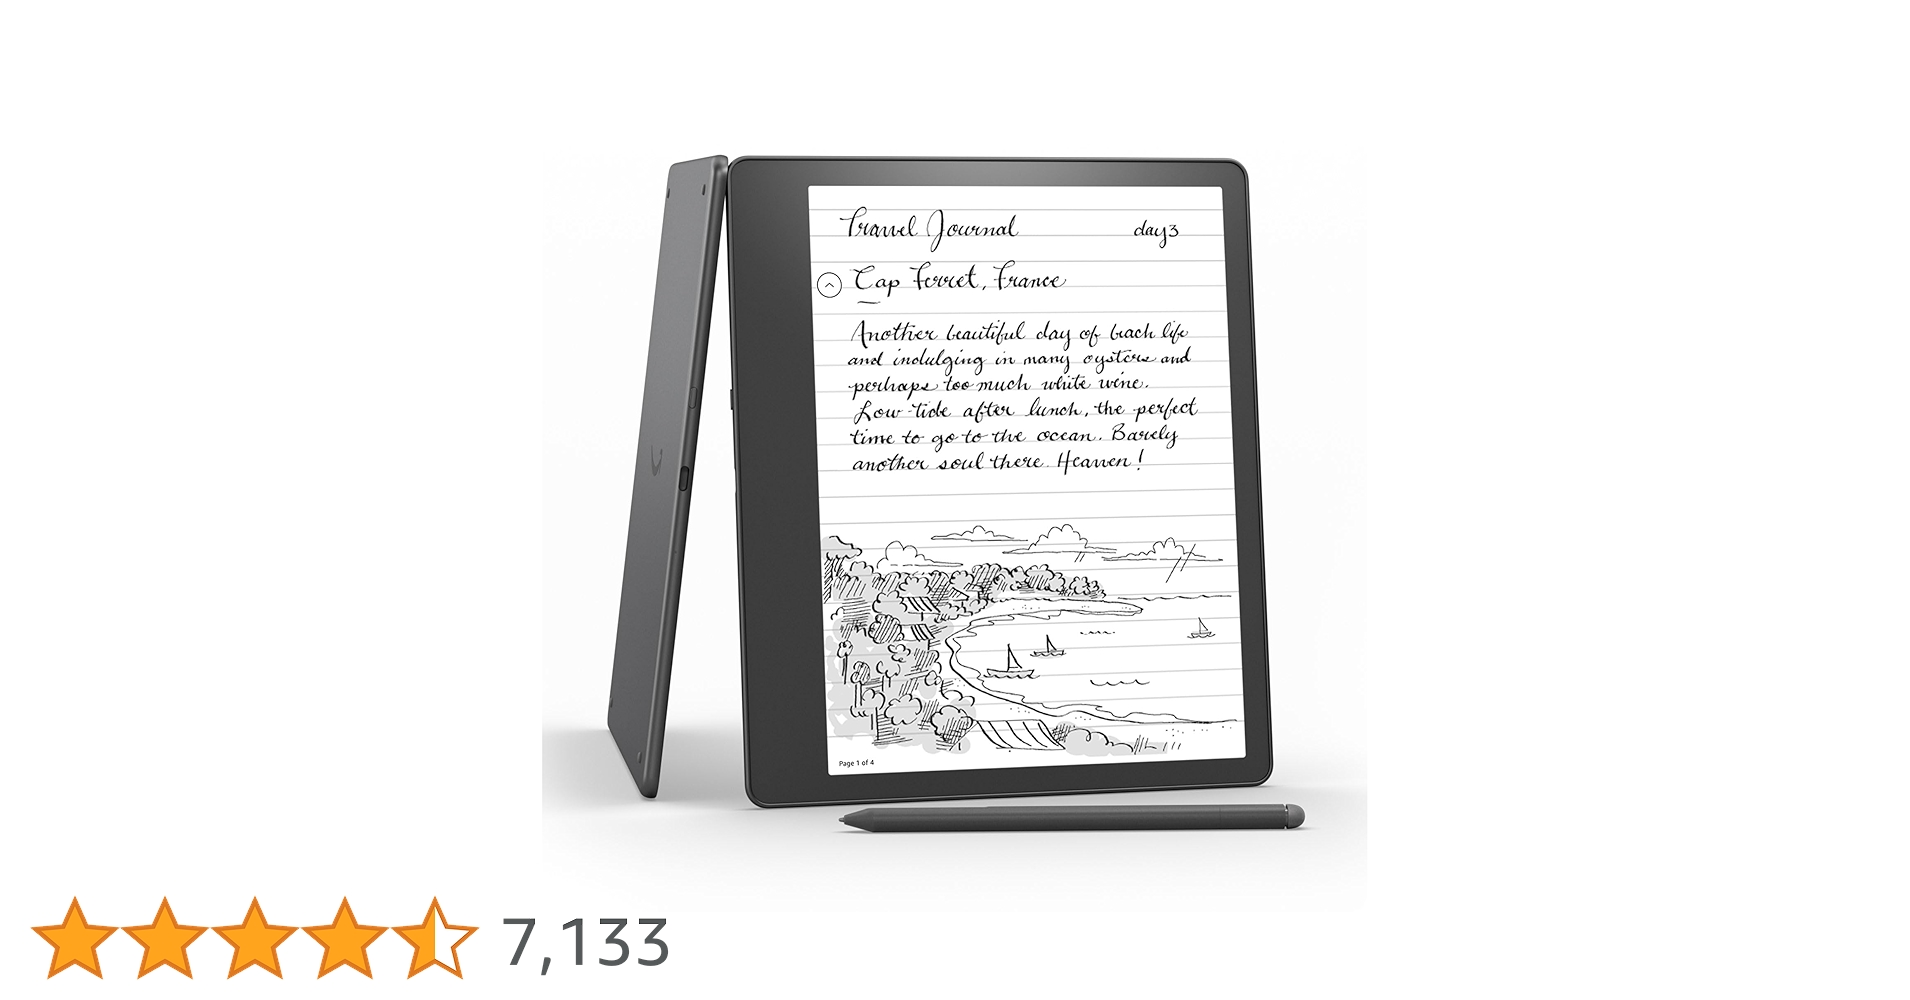 Travel Journal day 3
Cap Ferret, France
Another beautiful day of beach life
and indulging in many oysters and
perhaps too much white wine.
Low-tide after lunch, the perfect
time to go to the ocean. Barely
another soul there. Heaven!
Page 1 of 4
7,133